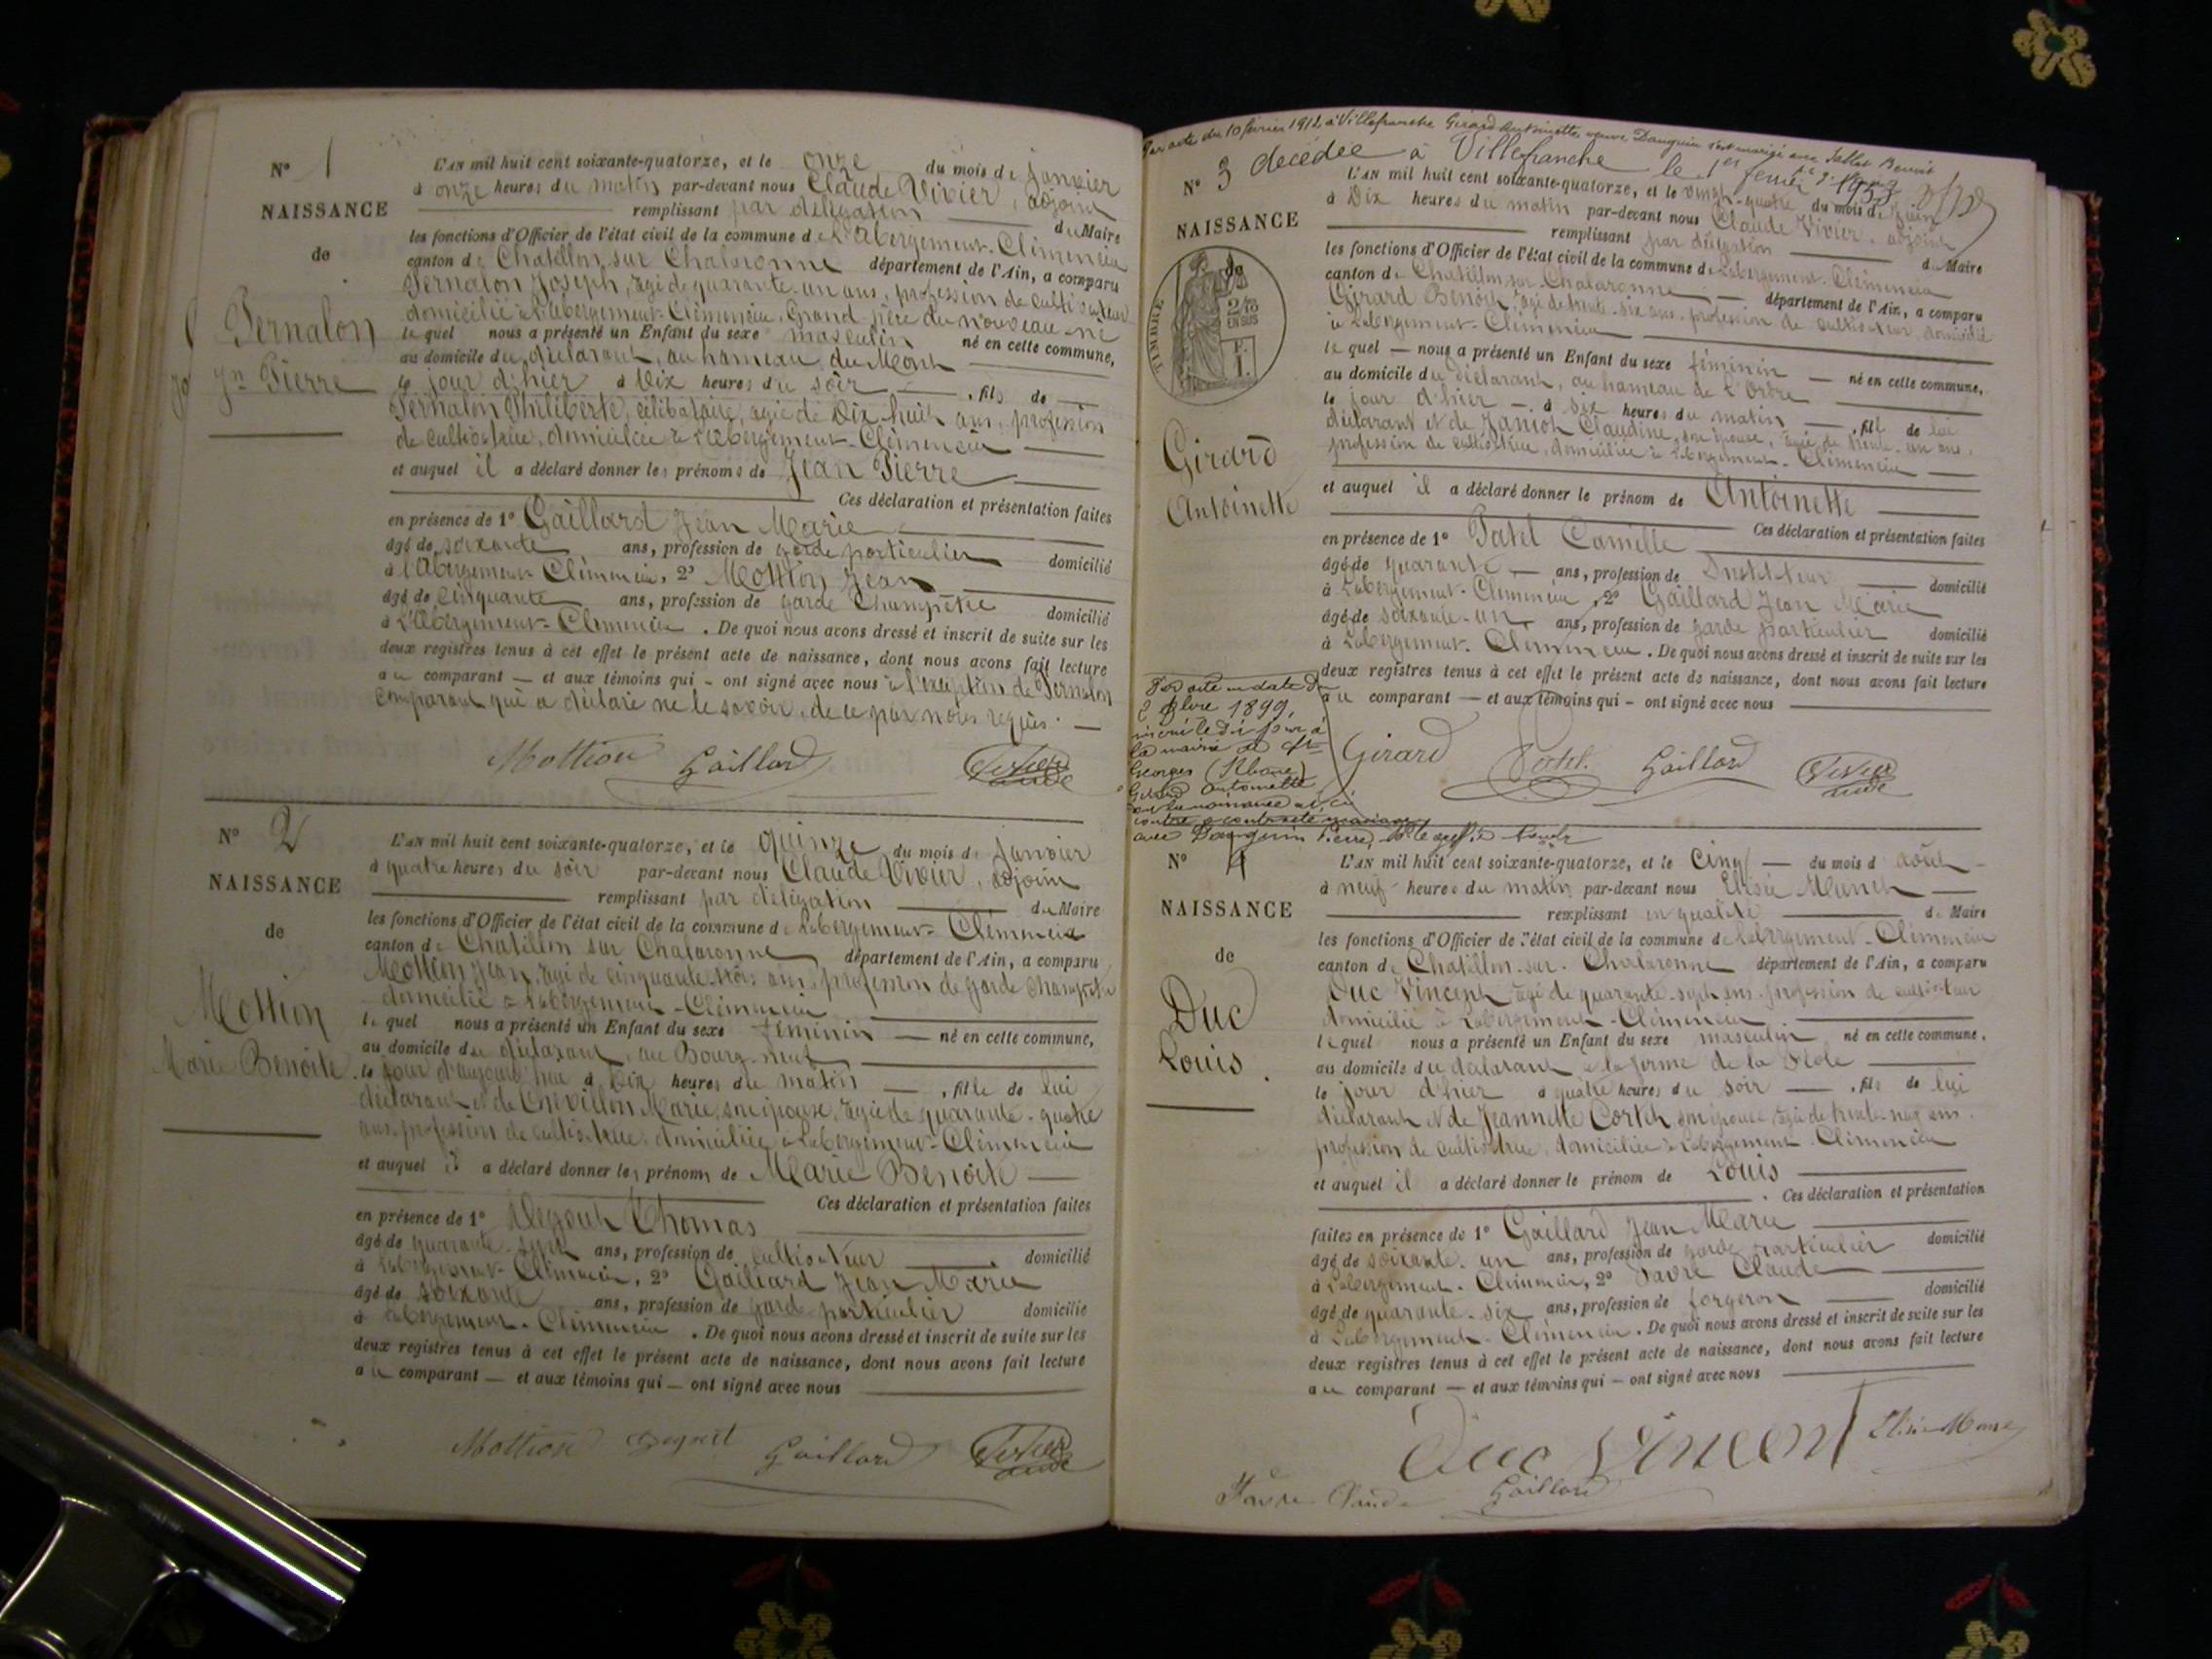 N° 1
NAISSANCE
de
Pernalon
Jn Pierre
L'AN mil huit cent soixante-quatorze, et le onze du mois de janvier
à onze heures du matin par-devant nous Claude Vivier, adjoint
remplissant par délégation du Maire
les fonctions d'Officier de l'état civil de la commune de L'Abergement-Clémencia
canton de Chatillon sur Chalaronne département de l'Ain, a comparu
Pernalon Joseph, âgé de quarante-un ans, profession de cultivateur
domicilié à L'Abergement-Clémencia, Grand père du nouveau-né
lequel nous a présenté un Enfant du sexe masculin né en cette commune,
au domicile du déclarant, au hameau du Mont
le jour d'hier à Dix heures du soir, fils de
Pernalon Philiberte, célibataire, agée de Dix-huit ans, profession
de cultivatrice, domiciliée à L'Abergement-Clémencia
et auquel il a déclaré donner les prénoms de Jean Pierre
Ces déclaration et présentation faites
en présence de 1° Gaillard Jean Marie
âgé de soixante ans, profession de garde particulier domicilié
à l'Abergement Clémencia, 2° Mottion Jean
âgé de cinquante ans, profession de garde Champêtre domicilié
à L'Abergement-Clémencia. De quoi nous avons dressé et inscrit de suite sur les
deux registres tenus à cet effet le présent acte de naissance, dont nous avons fait lecture
au comparant — et aux témoins qui - ont signé avec nous à l'exception de Pernalon
comparant qui a déclaré ne le savoir, de ce par nous requis. —
Mottion Gaillard Vivier Claude
N° 2
NAISSANCE
de
Mottion
Marie Benoite
L'AN mil huit cent soixante-quatorze, et le quinze du mois de janvier
à quatre heures du soir par-devant nous Claude Vivier, adjoint
remplissant par délégation du Maire
les fonctions d'Officier de l'état civil de la commune de Labergement-Clémencia
canton de Chatillon sur Chalaronne département de l'Ain, a comparu
Mottion Jean, âgé de cinquante-trois ans, profession de garde champêtre
domicilié à Labergement-Clémencia
lequel nous a présenté un Enfant du sexe féminin — né en cette commune,
au domicile du déclarant, au Bourg-neuf
le jour d'aujourd'hui à Dix heures du matin —, fille de lui
déclarant et de Chevillon Marie, son épouse, agée de quarante-quatre
ans, profession de cultivatrice, domiciliée à Labergement-Clémencia
et auquel il a déclaré donner les prénoms de Marie Benoite —
Ces déclaration et présentation faites
en présence de 1° Thomas
âgé de quarante-sept ans, profession de cultivateur domicilié
à Labergement-Clémencia, 2° Gaillard Jean Marie
âgé de soixante ans, profession de garde particulier domicilié
à Labergement-Clémencia. De quoi nous avons dressé et inscrit de suite sur les
deux registres tenus à cet effet le présent acte de naissance, dont nous avons fait lecture
au comparant — et aux témoins qui — ont signé avec nous
Mottion Gaillard Vivier Claude
Par acte du 10 février 1912, à Villefranche Girard Antoinette, veuve Dauguin s'est mariée avec Benoit
N° 3 décédée à Villefranche le 1er février 1953
NAISSANCE
de
TIMBRE
2/10
EN SUS
Girard
Antoinette
L'AN mil huit cent soixante-quatorze, et le vingt-quatre du mois de juin
à Dix heures du matin par-devant nous Claude Vivier, adjoint
remplissant par délégation du Maire
les fonctions d'Officier de l'état civil de la commune de Labergement-Clémencia
canton de Chatillon sur Chalaronne département de l'Ain, a comparu
Girard Benoit, âgé de trente-six ans, profession de cultivateur, domicilié
à Labergement-Clémencia
lequel — nous a présenté un Enfant du sexe féminin — né en cette commune,
au domicile du déclarant, au hameau de l'Ordre
le jour d'hier — à six heures du matin —, fille de lui
déclarant et de Janich Claudine, son épouse, agée de trente-un ans,
profession de cultivatrice, domiciliée à Labergement-Clémencia —
et auquel il a déclaré donner le prénom de Antoinette
Ces déclaration et présentation faites
en présence de 1° Patel Camille
âgé de quarante — ans, profession de Instituteur domicilié
à Labergement-Clémencia, 2° Gaillard Jean Marie
âgé de soixante-un ans, profession de garde particulier domicilié
à Labergement-Clémencia. De quoi nous avons dressé et inscrit de suite sur les
deux registres tenus à cet effet le présent acte de naissance, dont nous avons fait lecture
au comparant — et aux témoins qui - ont signé avec nous
Par acte en date du
2 9bre 1899,
inscrit le dit jour à
la mairie de St
Georges (Rhône)
Girard Antoinette
dont la naissance est ci
contre a contracté mariage
avec Dauguin Pierre
Girard Patel. Gaillard Vivier Claude
N° 4
NAISSANCE
de
Duc
Louis.
L'AN mil huit cent soixante-quatorze, et le cinq — du mois d'août —
à neuf heures du matin par-devant nous Elisée Munch —
remplissant en qualité de Maire
les fonctions d'Officier de l'état civil de la commune de Labergement-Clémencia
canton de Chatillon-sur-Chalaronne département de l'Ain, a comparu
Duc Vincent âgé de quarante-sept ans, profession de cultivateur
domicilié à Labergement-Clémencia
lequel nous a présenté un Enfant du sexe masculin né en cette commune,
au domicile du déclarant à la ferme de la
le jour d'hier à quatre heures du soir —, fils de lui
déclarant et de Jeannette son épouse agée de trente-neuf ans,
profession de cultivatrice, domiciliée à Labergement-Clémencia
et auquel il a déclaré donner le prénom de Louis
Ces déclaration et présentation
faites en présence de 1° Gaillard Jean Marie
âgé de soixante-un ans, profession de garde particulier domicilié
à Labergement-Clémencia, 2° Favre Claude
âgé de quarante-six ans, profession de forgeron domicilié
à Labergement-Clémencia. De quoi nous avons dressé et inscrit de suite sur les
deux registres tenus à cet effet le présent acte de naissance, dont nous avons fait lecture
au comparant — et aux témoins qui — ont signé avec nous
Duc Vincent
Favre Claude Gaillard